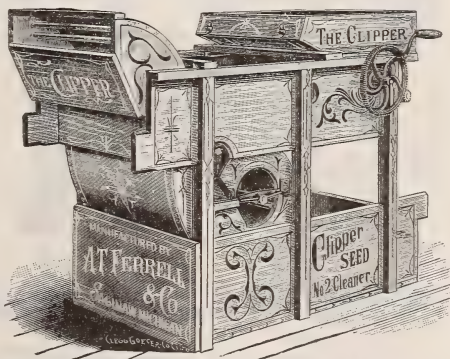 THE CLIPPER
THE CLIPPER
MANUFACTURED BY
A.T. FERRELL
& Co
SAGINAW MICHIGAN
Clipper
SEED
No 2 Cleaner.